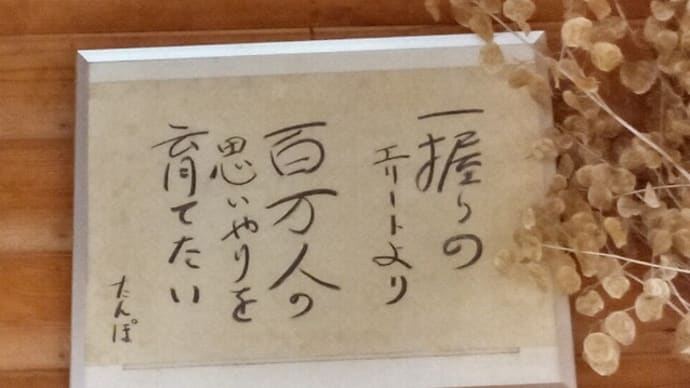 一握りの
エリートより
百万人の
思いやりを
育てたい
たんぽ